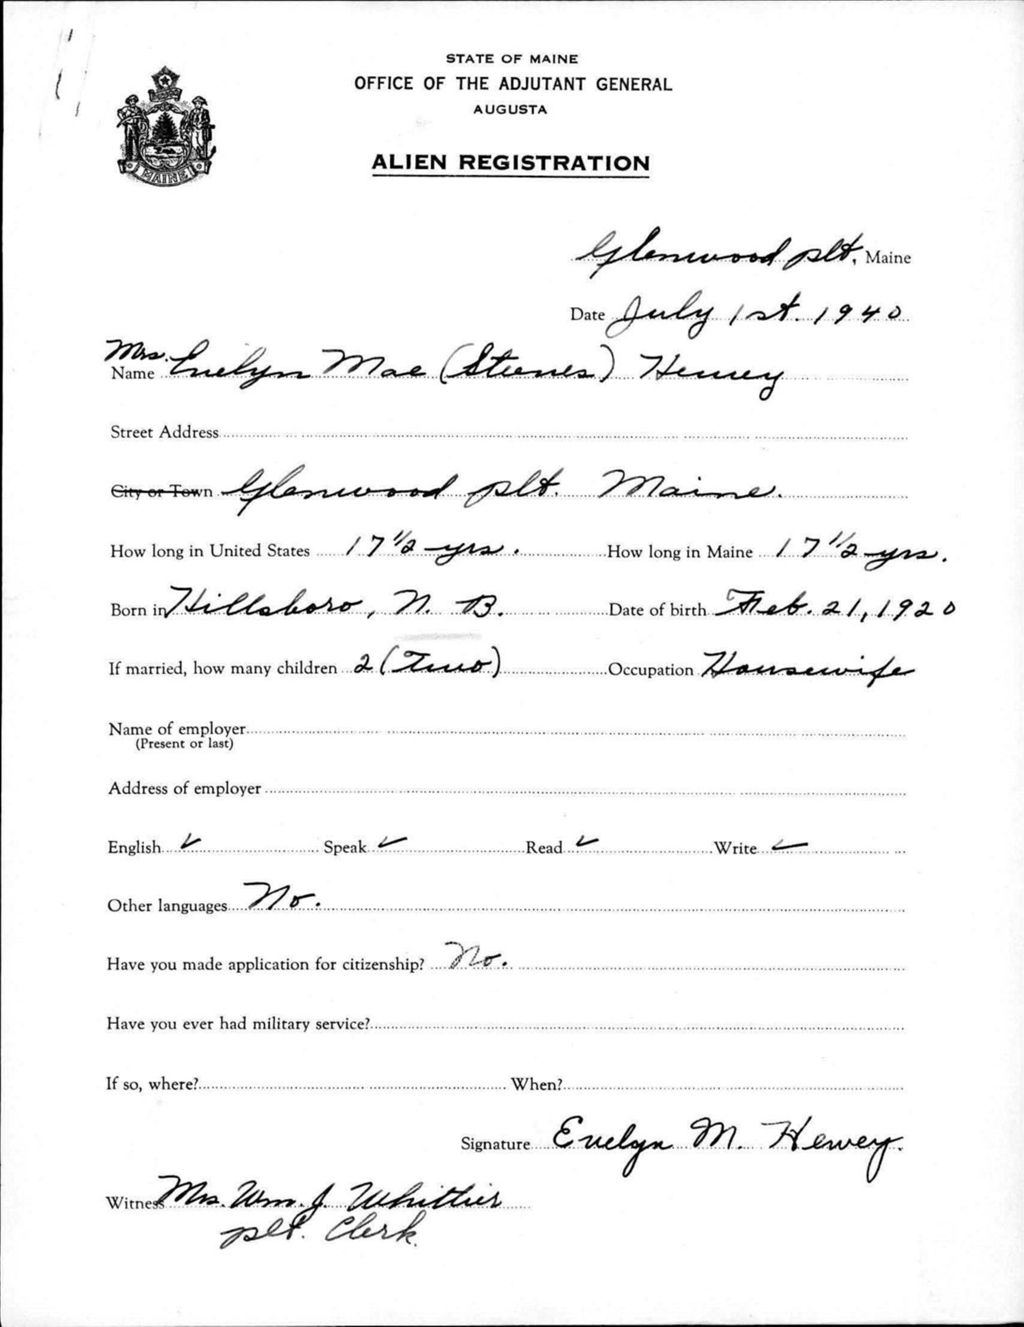 STATE OF MAINE
OFFICE OF THE ADJUTANT GENERAL
AUGUSTA
ALIEN REGISTRATION
MAINE
Glenwood plt, Maine
Date July 1st. 1940
Mrs.
Name Evelyn Mae (Steeves) Hewey
Street Address
City or Town Glenwood plt. Maine.
How long in United States 17 1/2 yrs. How long in Maine 17 1/2 yrs.
Born in Hillsboro, N. B. Date of birth Feb. 21, 1920
If married, how many children 2 (Two) Occupation Housewife
Name of employer
(Present or last)
Address of employer
English ✓ Speak ✓ Read ✓ Write ✓
Other languages No.
Have you made application for citizenship? No.
Have you ever had military service?
If so, where? When?
Signature Evelyn M. Hewey.
Witness Mrs. Wm. J. Whittier
plt. Clerk.